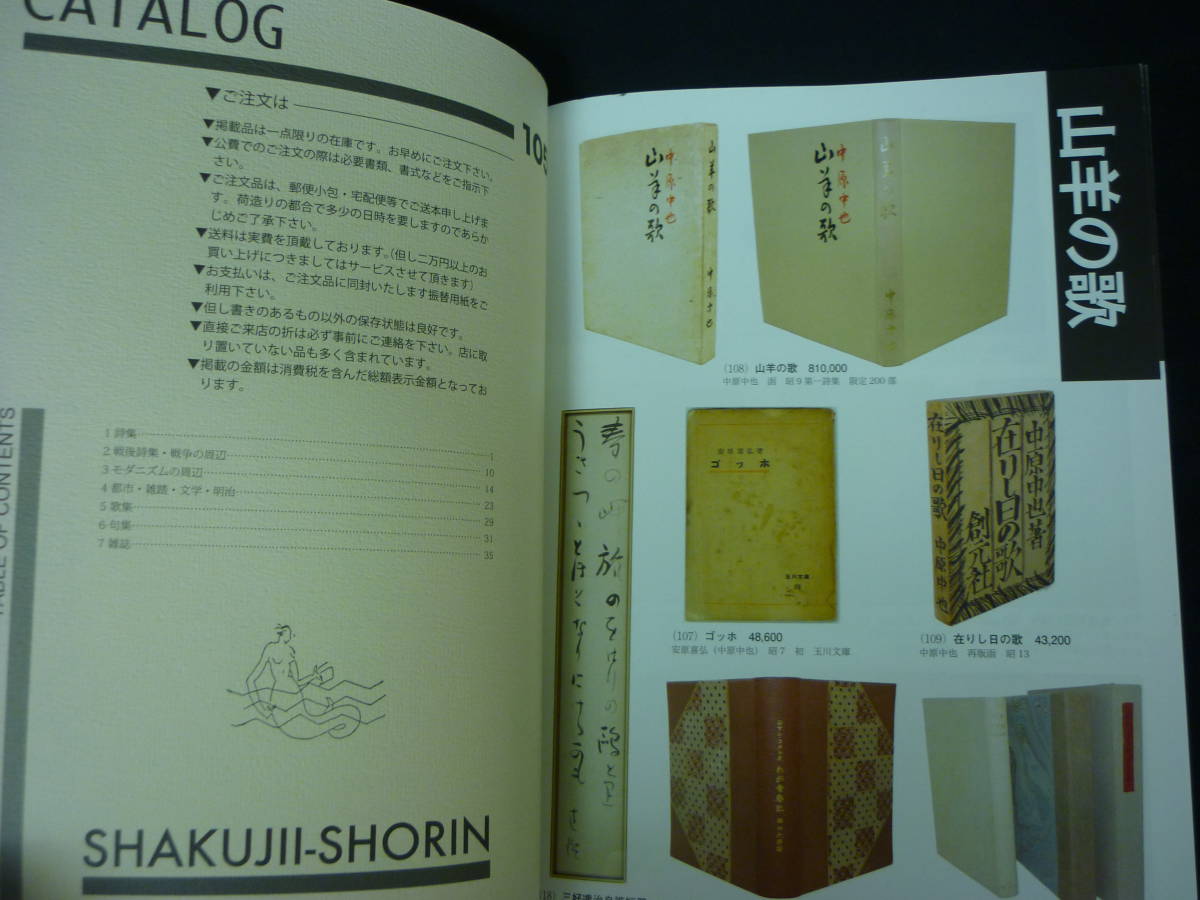 CATALOG
105
▼ご注文は
▼掲載品は一点限りの在庫です。お早めにご注文下さい。
▼公費でのご注文の際は必要書類、書式などをご指示下
さい。
▼ご注文品は、郵便小包・宅配便等でご送本申し上げま
す。荷造りの都合で多少の日時を要しますのであらか
じめご了承下さい。
▼送料は実費を頂戴しております。（但し二万円以上のお
買い上げにつきましてはサービスさせて頂きます）
▼お支払いは、ご注文品に同封いたします振替用紙をご
利用下さい。
▼但し書きのあるもの以外の保存状態は良好です。
▼直接ご来店の折は必ず事前にご連絡を下さい。店に取
り置いていない品も多く含まれています。
▼掲載の金額は消費税を含んだ総額表示金額となってお
ります。
TABLE OF CONTENTS
1 詩集 1
2 戦後詩集・戦争の周辺 10
3 モダニズムの周辺 14
4 都市・雑踏・文学・明治 23
5 歌集 29
6 句集 31
7 雑誌 35
SHAKUJII-SHORIN
山羊の歌
中原中也
山羊の歌
山羊の歌
中原中也
中原中也
山羊の歌
山羊の歌
中原中也
（108）山羊の歌 810,000
中原中也 函 昭9第一詩集 限定200部
安原喜弘著
ゴッホ
玉川文庫
（107）ゴッホ 48,600
安原喜弘（中原中也） 昭7 初 玉川文庫
中原中也著
在りし日の歌
創元社
在りし日の歌
中原中也
（109）在りし日の歌 43,200
中原中也 再版函 昭13